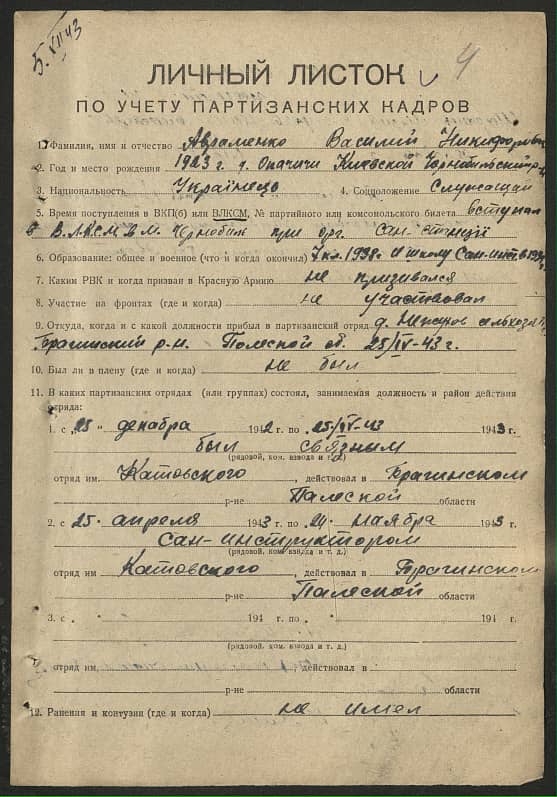 5.XII 43
4
ЛИЧНЫЙ ЛИСТОК
ПО УЧЕТУ ПАРТИЗАНСКИХ КАДРОВ
1. Фамилия, имя и отчество Авраменко Василий Никифорович
2. Год и место рождения 1923 г. д. Опачичи Киевской Чернобильский р-н
3. Национальность Українець 4. Соцположение Служащий
5. Время поступления в ВКП(б) или ВЛКСМ, № партийного или комсомольского билета вступал
в ВЛКСМ в м. Чернобиль при орг. Сан. станції
6. Образование: общее и военное (что и когда окончил) 7 кл. 1938 г. и школу Сан-инст. в 1939 г.
7. Каким РВК и когда призван в Красную Армию не призивался
8. Участие на фронтах (где и когда) не участвовал
9. Откуда, когда и с какой должности прибыл в партизанский отряд д.
Брагинский р-н. Полеской об. 25/IV-43 г.
10. Был ли в плену (где и когда) не был
11. В каких партизанских отрядах (или группах) состоял, занимаемая должность и район действия
отряда:
1. с „25“ декабря 1942 г. по 25/IV-43 1943 г.
был связным
(рядовой, ком. взвода и т. д.)
отряд им. Катовского, действовал в Брагинском
р-не Палеской области
2. с 25 апреля 1943 г. по 24 ноября 1943 г.
Сан-инструктором
(рядовой, ком. взвода и т. д.)
отряд им. Катовского, действовал в Брагинском
р-не Палеской области
3. с „ “ 194 г. по „ “ 194 г.
(рядовой, ком. взвода и т. д.)
отряд им. действовал в
р-не области
12. Ранения и контузии (где и когда) не имел